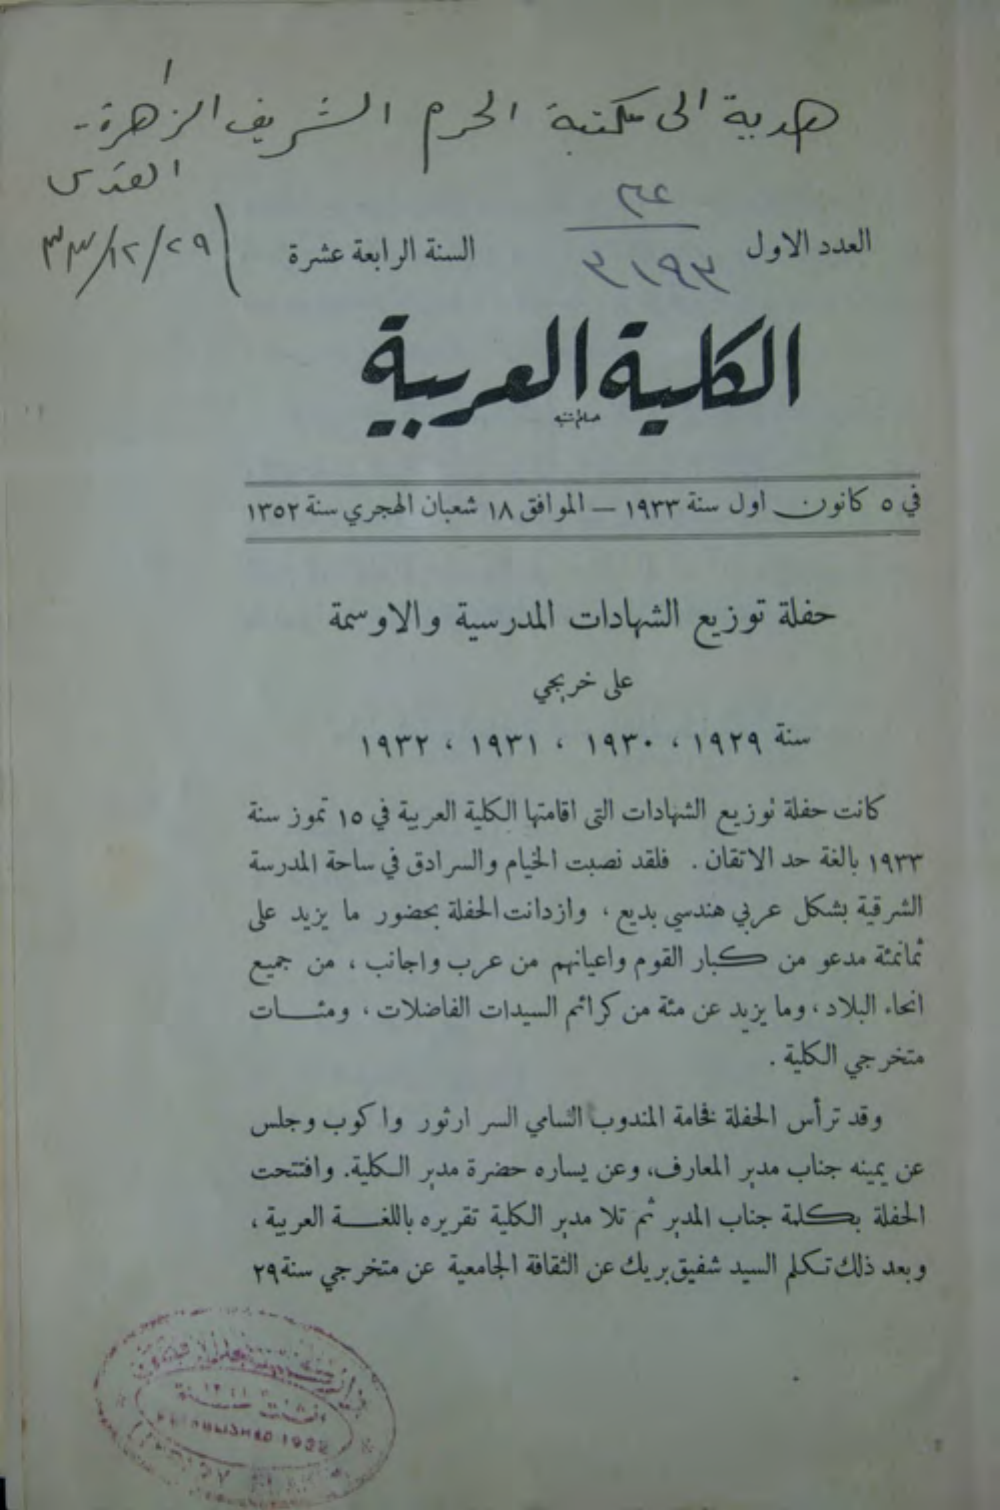 هدية الى مكتبة الحرم الشريف الزاهرة -
القدس
٢٩/١٢/٣٣
العدد الاول
السنة الرابعة عشرة
٣١٩٣
الكلية العربية
في ٥ كانون اول سنة ١٩٣٣ – الموافق ١٨ شعبان الهجري سنة ١٣٥٢
حفلة توزيع الشهادات المدرسية والاوسمة
على خريجي
سنة ١٩٢٩ ، ١٩٣٠ ، ١٩٣١ ، ١٩٣٢
كانت حفلة توزيع الشهادات التى اقامتها الكلية العربية في ١٥ تموز سنة
١٩٣٣ بالغة حد الاتقان . فلقد نصبت الخيام والسرادق في ساحة المدرسة
الشرقية بشكل عربي هندسي بديع ، وازدانت الحفلة بحضور ما يزيد على
ثمانمئة مدعو من كبار القوم واعيانهم من عرب واجانب ، من جميع
انحاء البلاد ، وما يزيد عن مئة من كرائم السيدات الفاضلات ، ومئات
متخرجي الكلية .
وقد ترأس الحفلة فخامة المندوب السامي السر ارثور واكوب وجلس
عن يمينه جناب مدير المعارف، وعن يساره حضرة مدير الكلية. وافتتحت
الحفلة بكلمة جناب المدير ثم تلا مدير الكلية تقريره باللغة العربية ،
وبعد ذلك تكلم السيد شفيق بريك عن الثقافة الجامعية عن متخرجي سنة ٢٩
ESTABLISHED 1922